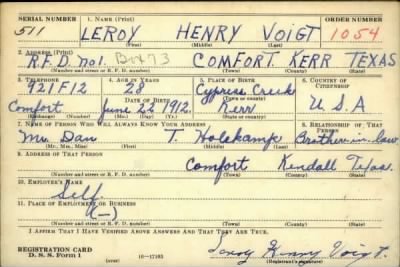 SERIAL NUMBER 1. NAME (Print) ORDER NUMBER
511 LEROY HENRY VOIGT 1054
(First) (Middle) (Last)
2. ADDRESS (Print)
R.F.D. No1. Box 73 COMFORT. KERR TEXAS
(Number and street or R. F. D. number) (Town) (County) (State)
3. TELEPHONE 4. AGE IN YEARS 5. PLACE OF BIRTH 6. COUNTRY OF CITIZENSHIP
921F12 28 Cypress Creek
DATE OF BIRTH (Town or county)
Comfort June 22 1912. Kerr U.S.A
(Exchange) (Number) (Mo.) (Day) (Yr.) (State or country)
7. NAME OF PERSON WHO WILL ALWAYS KNOW YOUR ADDRESS 8. RELATIONSHIP OF THAT PERSON
Mr. Dan T. Holekamp Brother-in-law
(Mr., Mrs., Miss) (First) (Middle) (Last)
9. ADDRESS OF THAT PERSON
Comfort Kendall Texas.
(Number and street or R. F. D. number) (Town) (County) (State)
10. EMPLOYER'S NAME
Self.
11. PLACE OF EMPLOYMENT OR BUSINESS
(—)
(Number and street or R. F. D. number) (Town) (County) (State)
I AFFIRM THAT I HAVE VERIFIED ABOVE ANSWERS AND THAT THEY ARE TRUE.
REGISTRATION CARD
D. S. S. Form 1 (over) 16—17105 Leroy Henry Voigt.
(Registrant's signature)